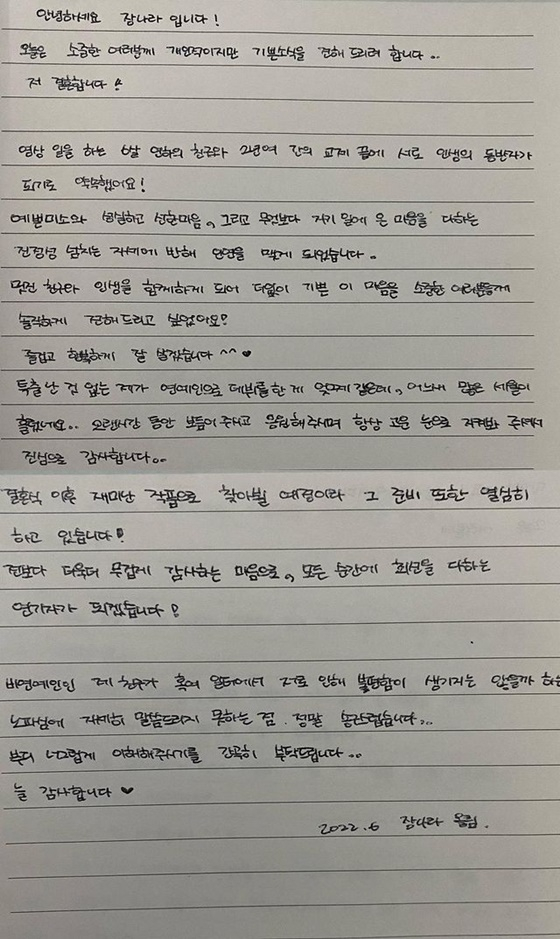 안녕하세요 장나라 입니다!
오늘은 소중한 여러분께 개인적이지만 기쁜소식을 전해 드리려 합니다..
저 결혼합니다!
영상 일을 하는 6살 연하의 친구와 2년여 간의 교제 끝에 서로 인생의 동반자가
되기로 약속했어요!
예쁜미소와 성실하고 선한마음, 그리고 무엇보다 자기 일에 온 마음을 다하는
진정성 넘치는 자세에 반해 인연을 맺게 되었습니다.
멋진 친구와 인생을 함께하게 되어 더없이 기쁜 이 마음을 소중한 여러분들께
솔직하게 전해드리고 싶었어요!
즐겁고 행복하게 잘 살겠습니다^^♥
특출난 것 없는 제가 연예인으로 데뷔를 한 게 엊그제 같은데, 어느새 많은 세월이
흘렀네요.. 오랜시간 동안 보듬어주시고 응원해주시며 항상 고운 눈으로 지켜봐 주셔서
진심으로 감사합니다..
결혼식 이후 재미난 작품으로 찾아뵐 예정이라 그 준비 또한 열심히
하고 있습니다!
전보다 더욱더 무겁게 감사하는 마음으로, 모든 순간에 최선을 다하는
연기자가 되겠습니다!
비연예인인 제 친구가 혹여 일터에서 저로 인해 불편함이 생기지는 않을까 하는
노파심에 자세히 말씀드리지 못하는 점. 정말 송구스럽습니다...
부디 너그럽게 이해해주시기를 간곡히 부탁드립니다..
늘 감사합니다♥
2022.6 장나라 올림.